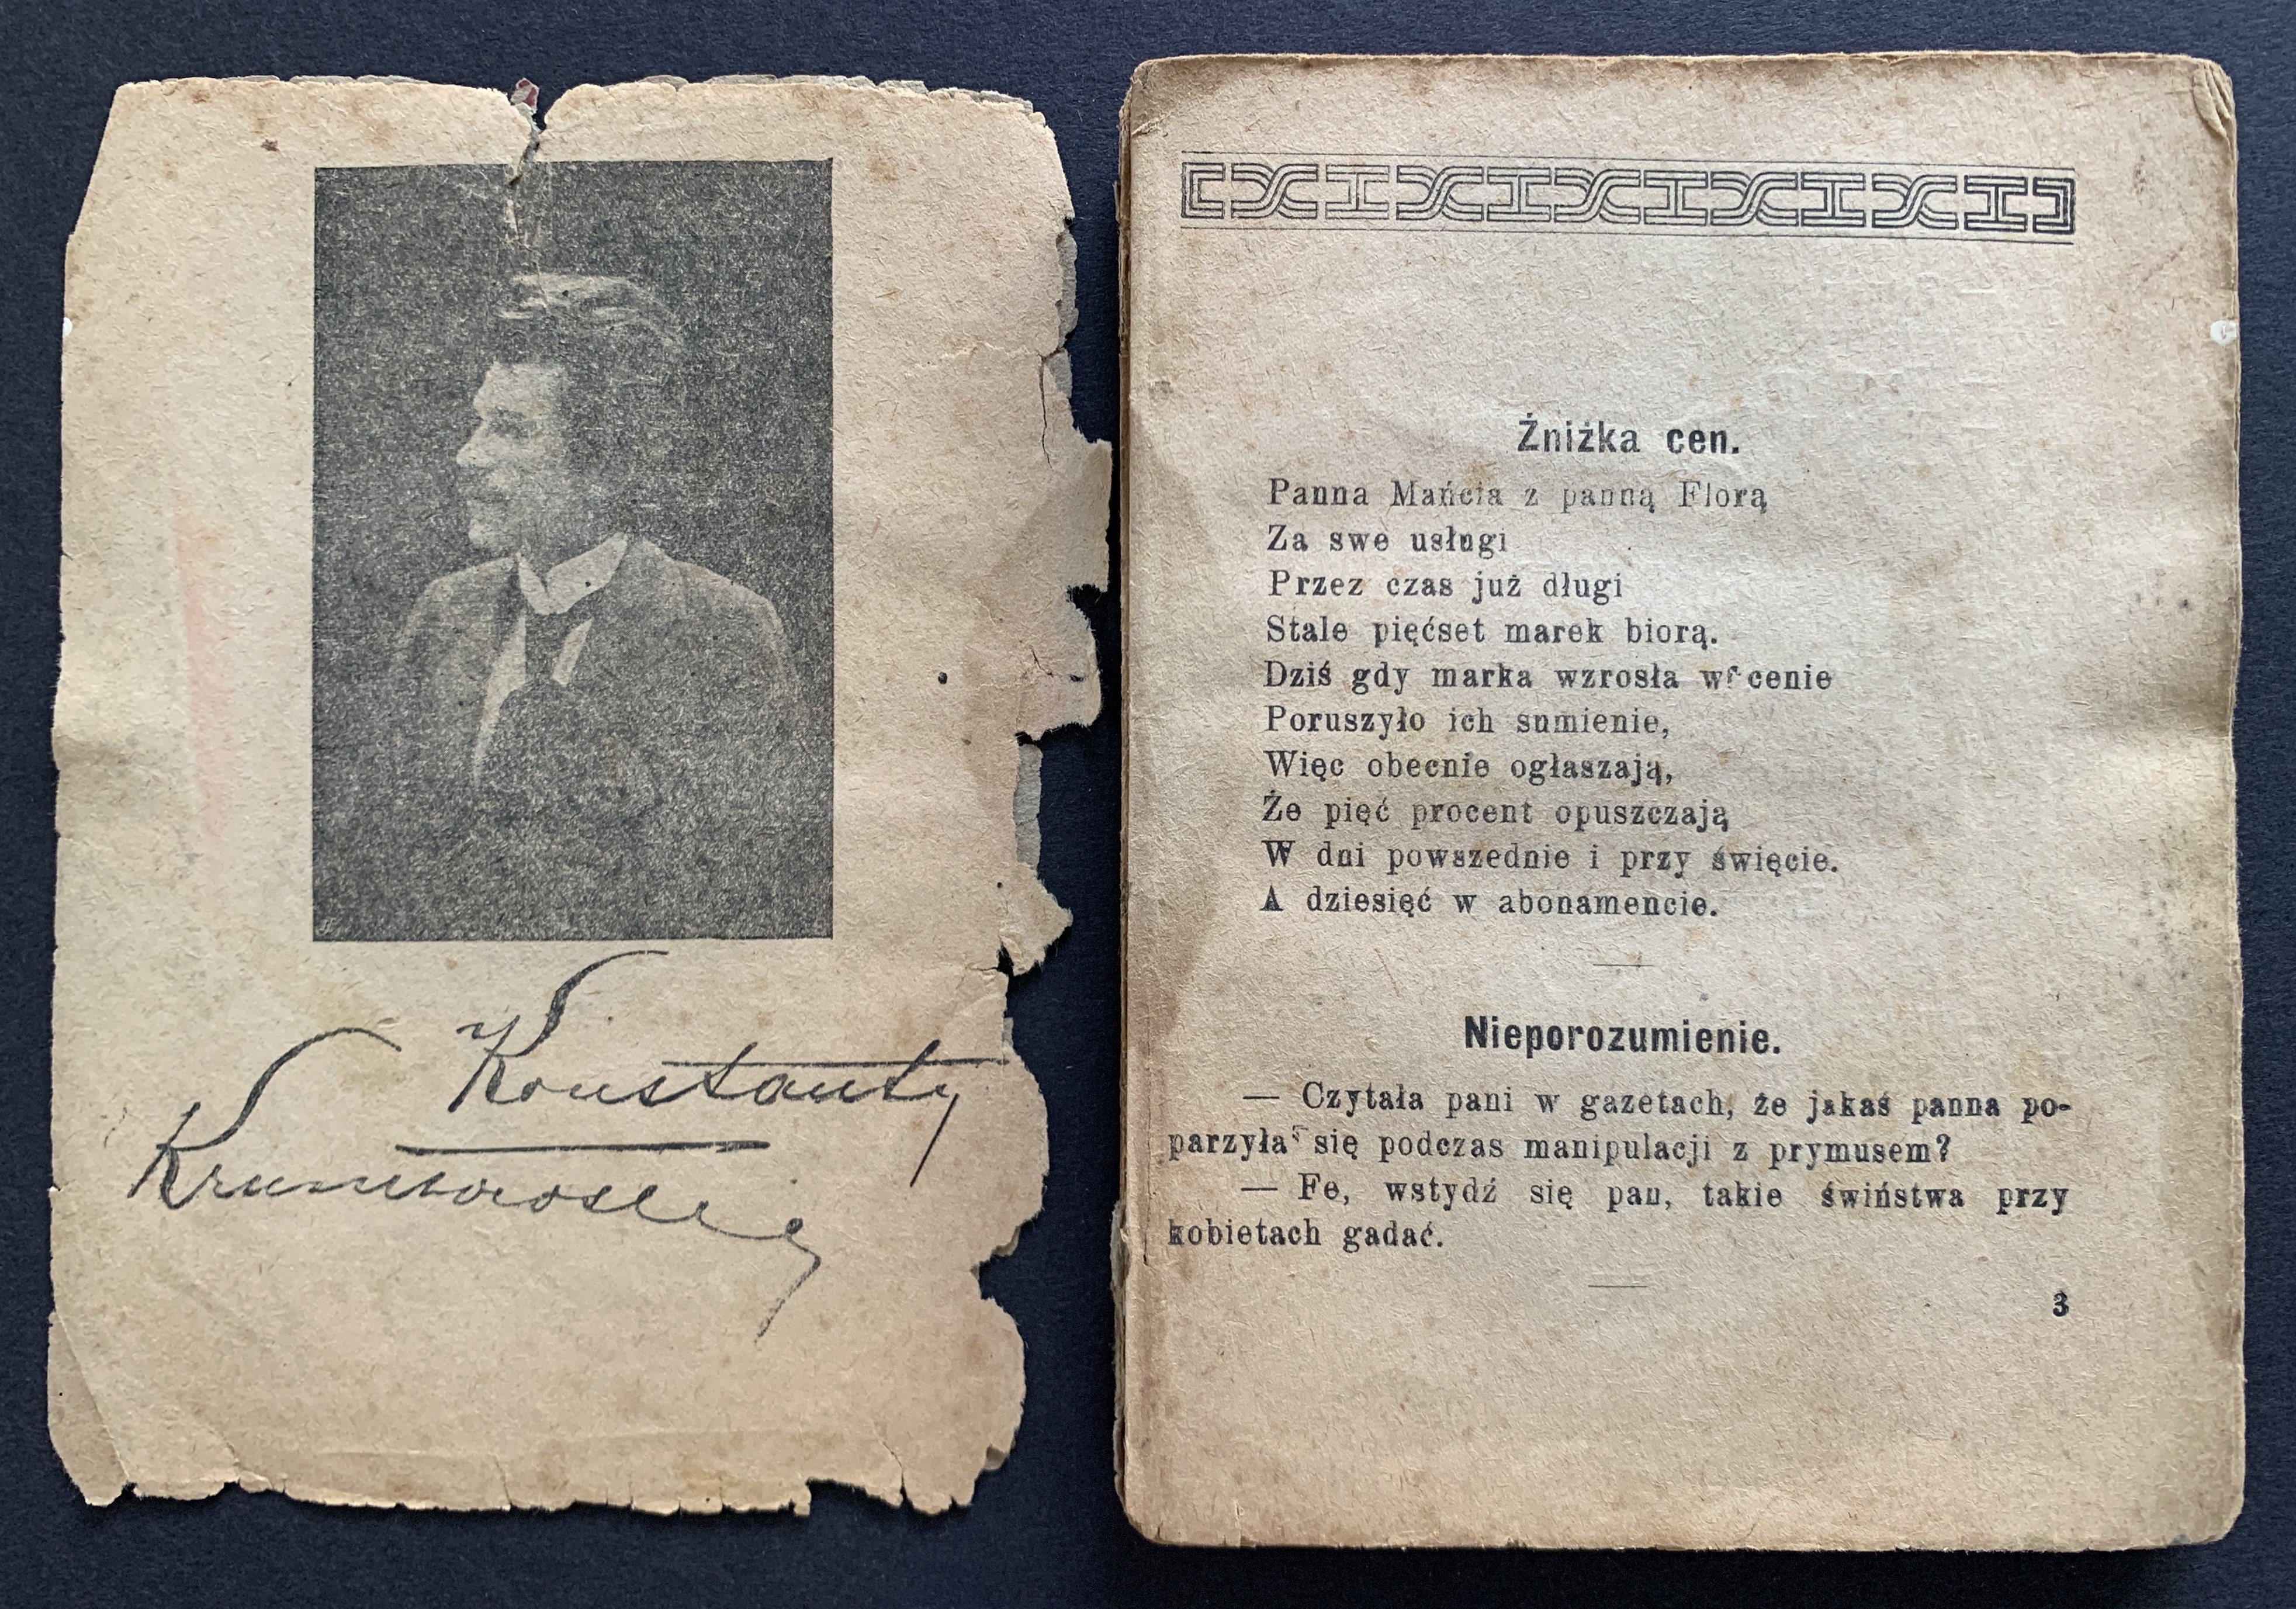 Konstanty
Krumłowski
Żniżka cen.
Panna Mańcia z panną Florą
Za swe usługi
Przez czas już długi
Stale pięćset marek biorą.
Dziś gdy marka wzrosła w cenie
Poruszyło ich sumienie,
Więc obecnie ogłaszają,
Że pięć procent opuszczają
W dni powszednie i przy święcie.
A dziesięć w abonamencie.
Nieporozumienie.
— Czytała pani w gazetach, że jakaś panna po-
parzyła się podczas manipulacji z prymusem?
— Fe, wstydź się pan, takie świństwa przy
kobietach gadać.
3